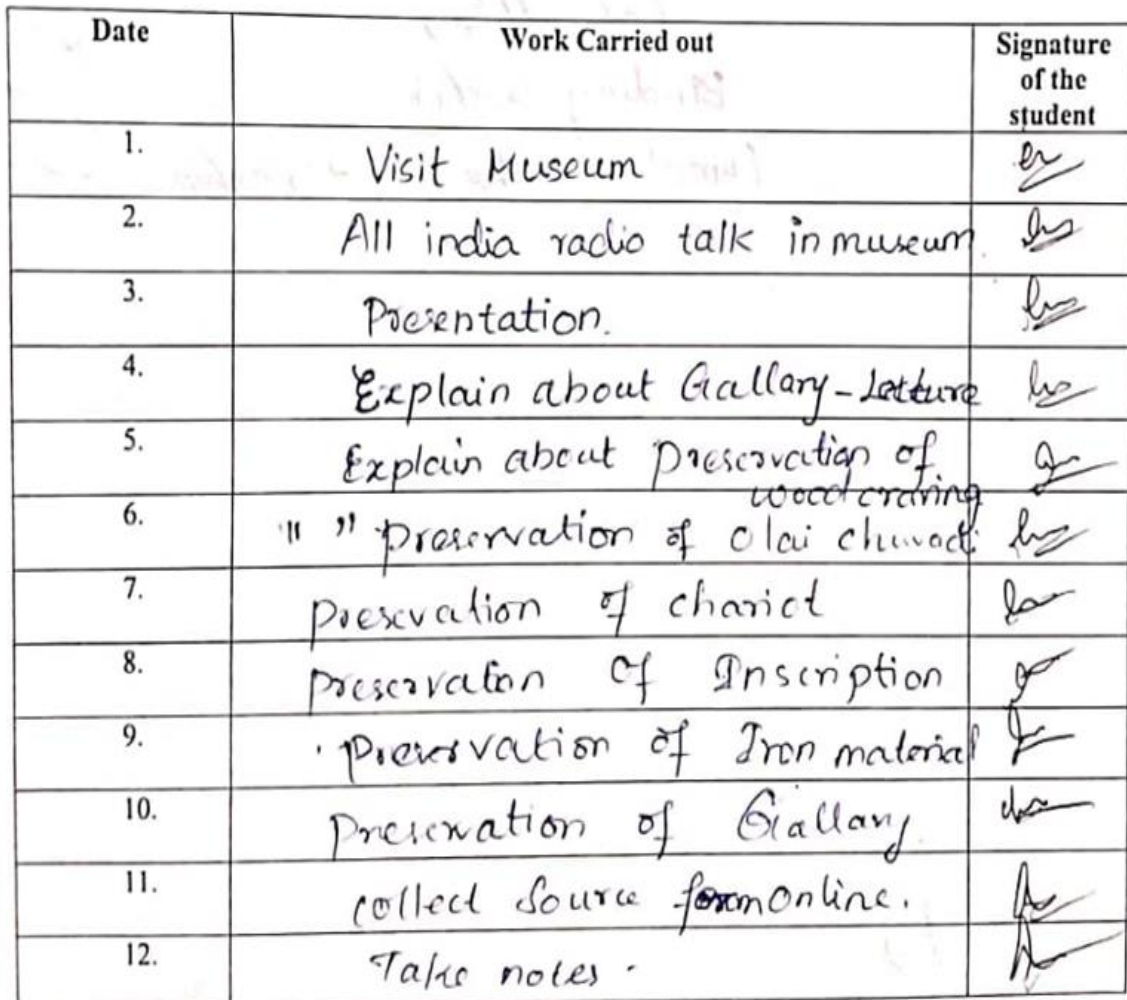 Date Work Carried out Signature
of the
student
1. Visit Museum
2. All india radio talk in museum
3. Presentation.
4. Explain about Gallary - Letture
5. Explain about preservation of
wood craving
6. " " preservation of olai chuvadi
7. presevation of chariot
8. preservation of Inscription
9. preservation of Iron material
10. preservation of Gallary
11. collect Source form online.
12. Take notes.